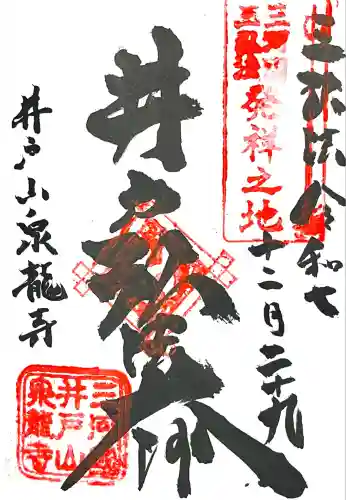 三弘法 令和七
十二月二十九
発祥之地
井戸弘法大师
井戸山泉龍寺
三河
井戸山
泉龍寺